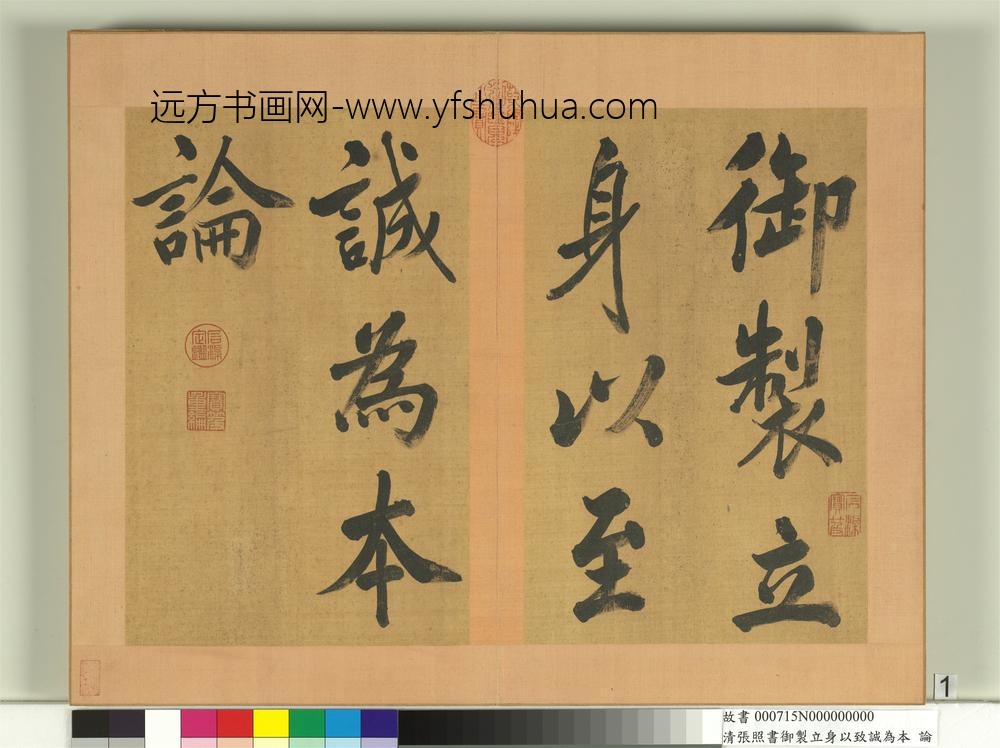 远方书画网-www.yfshuhua.com
御製立
身以至
誠為本
論
石渠寶笈
石渠定鑑
寶笈重編
1
故書 000715N000000000
清張照書御製立身以致誠為本 論